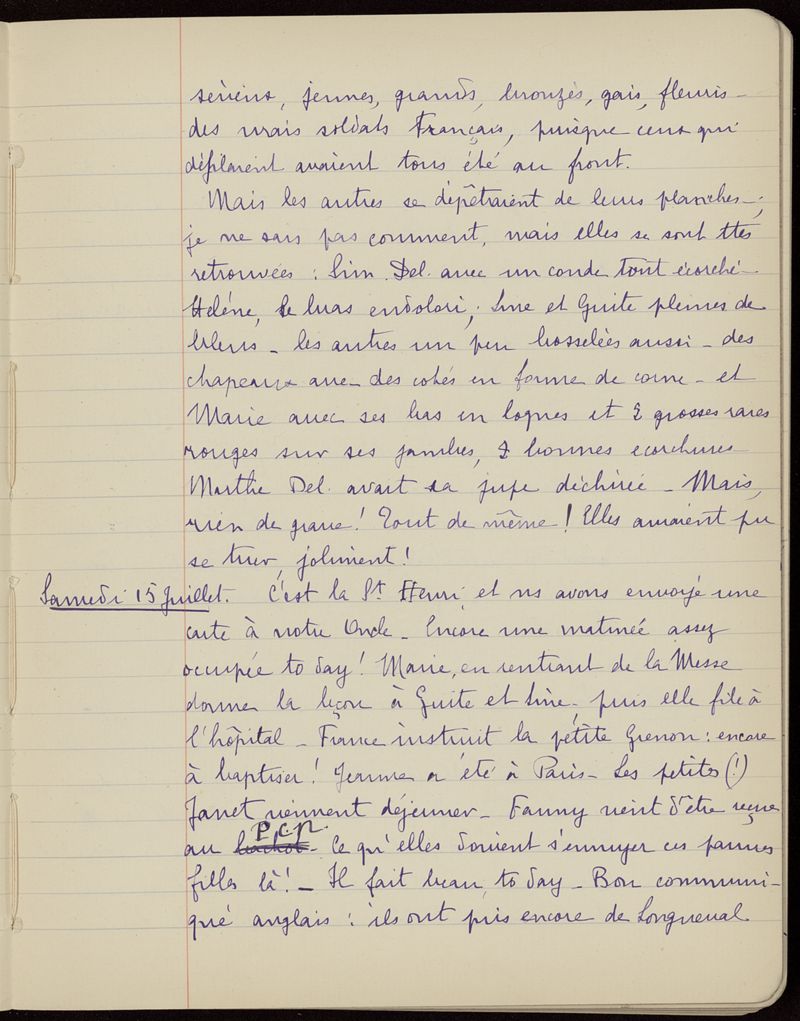 sérieux, jeunes, grands, bronzés, gais, fleuris -
des vrais soldats Français, puisque ceux qui
défilaient avaient tous été au front.
Mais les autres se dépêtraient de leurs planches - ;
je ne sais pas comment, mais elles se sont ttes
retrouvées : Sim. Del. avec un coude tout écorché -
Hélène, le bras endolori, Line et Guite pleines de
bleus - les autres un peu bosselées aussi - des
chapeaux avec des cotés en forme de corne - et
Marie avec ses bas en loques et 2 grosses raies
rouges sur ses jambes, 2 bonnes ecorchures
Marthe Del. avait sa jupe déchirée - Mais,
rien de grave ! Tout de même ! Elles auraient pu
se tuer, joliment !
Samedi 15 Juillet. C'est la St Henri, et ns avons envoyé une
carte à notre Oncle - Encore une matinée assez
occupée to day ! Marie, en rentrant de la Messe
donne la leçon à Guite et Line - puis elle file à
l'hôpital - France instruit la petite Grenon : encore
à baptiser ! Jeanne a été à Paris - Les petites (!)
Janet viennent déjeuner - Fanny vient d'être reçue
au bachot P.C.N. - Ce qu'elles doivent s'ennuyer ces pauvres
filles là ! - Il fait beau, to day - Bon communi-
qué anglais : ils ont pris encore de Longueval